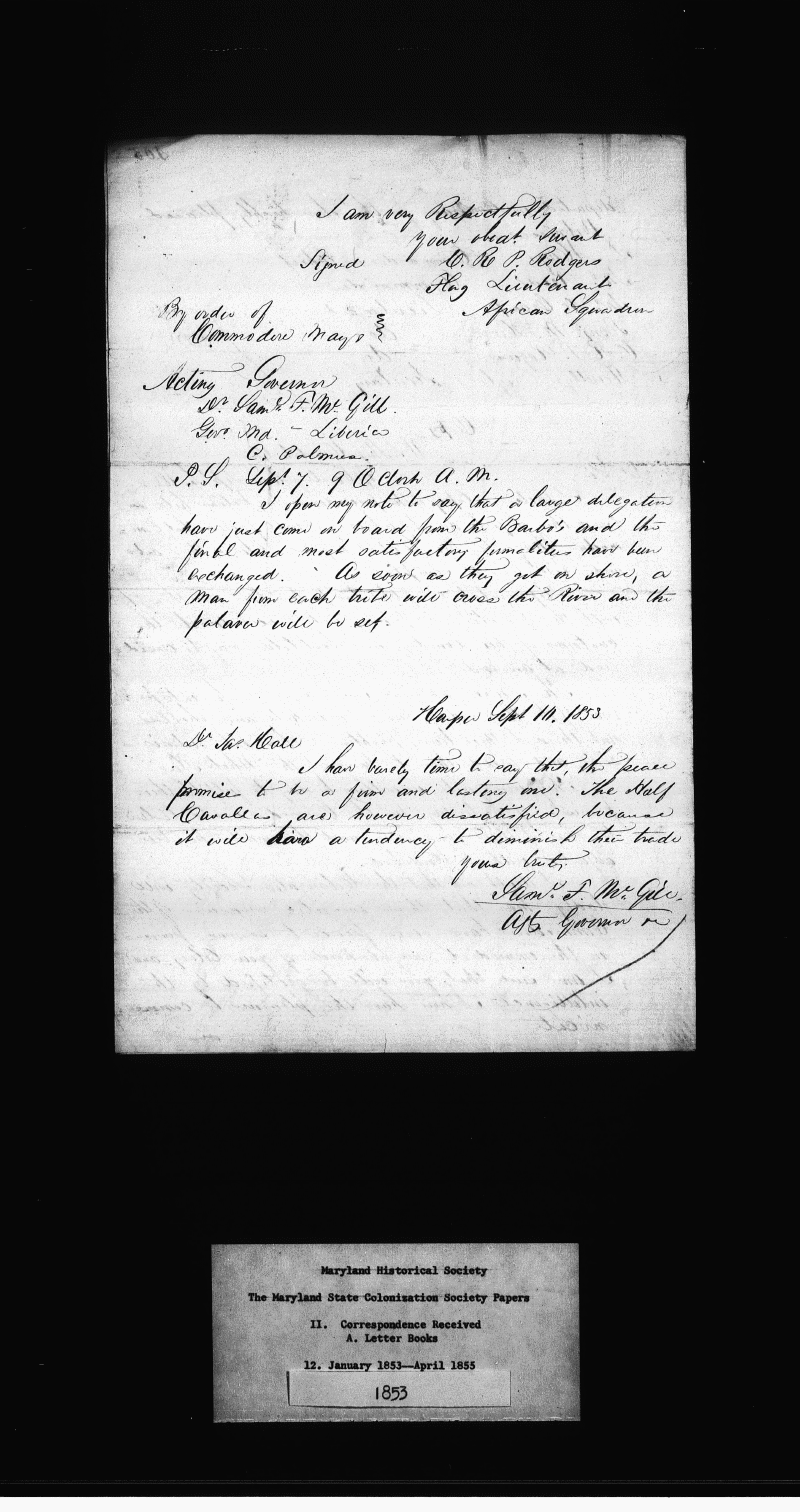 I am very Respectfully
your obedt. Servant
Signed C. R. P. Rodgers
Flag Lieutenant
African Squadron
By order of
Commodore Mayo
Acting Governor
Dr. Saml. F. Mc. Gill.
Govr. Md. - Liberia
C. Palmas.
P. S. Sept. 7. 9 O Clock A. M.
I open my note to say that a large delegation
have just come on board from the Barbo's and the
final and most satisfactory formalities have been
exchanged. As soon as they get on shore, a
man from each tribe will cross the River and the
palaver will be set.
Harper Sept 14. 1853
Dr. Jas. Hall
I have barely time to say that, the peace
promises to be a firm and lasting one. The Half
Cavallas are however dissatisfied, because
it will have a tendency to diminish their trade
yours truly.
Saml. F. Mc. Gill.
Governor
Maryland Historical Society
The Maryland State Colonization Society Papers
II. Correspondence Received
A. Letter Books
12. January 1853--April 1855
1853